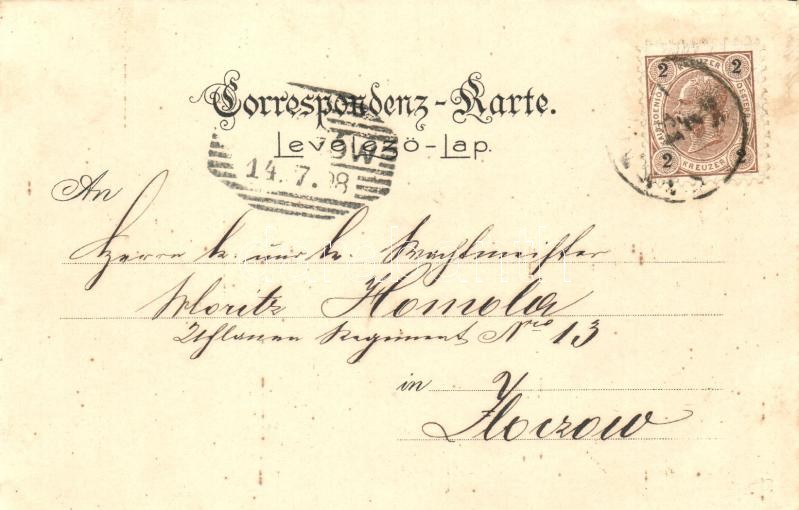 Correspondenz-Karte.
Levelező-Lap.
14.7.98
2 KREUZER 2
2 KREUZER 2
An
Herrn k. und k. Wachtmeister
Moritz Homola
Uhlanen Regiment Nro 13
in
Złoczow